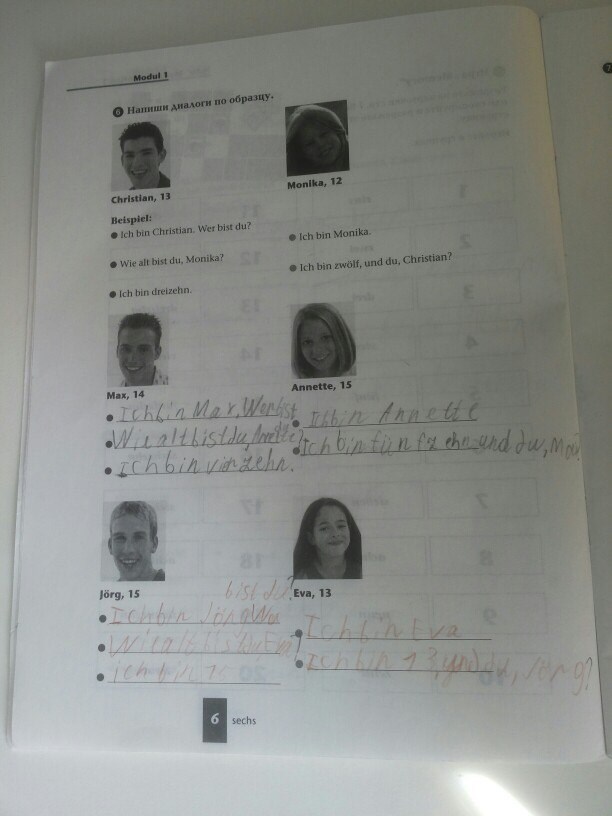 Modul 1
6 Напиши диалоги по образцу.
Christian, 13
Monika, 12
Beispiel:
● Ich bin Christian. Wer bist du?
● Ich bin Monika.
● Wie alt bist du, Monika?
● Ich bin zwölf, und du, Christian?
● Ich bin dreizehn.
Max, 14
Annette, 15
● Ich bin Max, Wer bist
● Ich bin Annette
● Wie alt bist du, Annette?
● Ich bin fünfzehn und du, Max?
● Ich bin vierzehn.
Jörg, 15
Eva, 13
bist du?
● Ich bin Jörg Wer
● Ich bin Eva
● Wie alt bist du Eva?
● Ich bin 13, und du, Jörg?
● ich bin 15
6 sechs